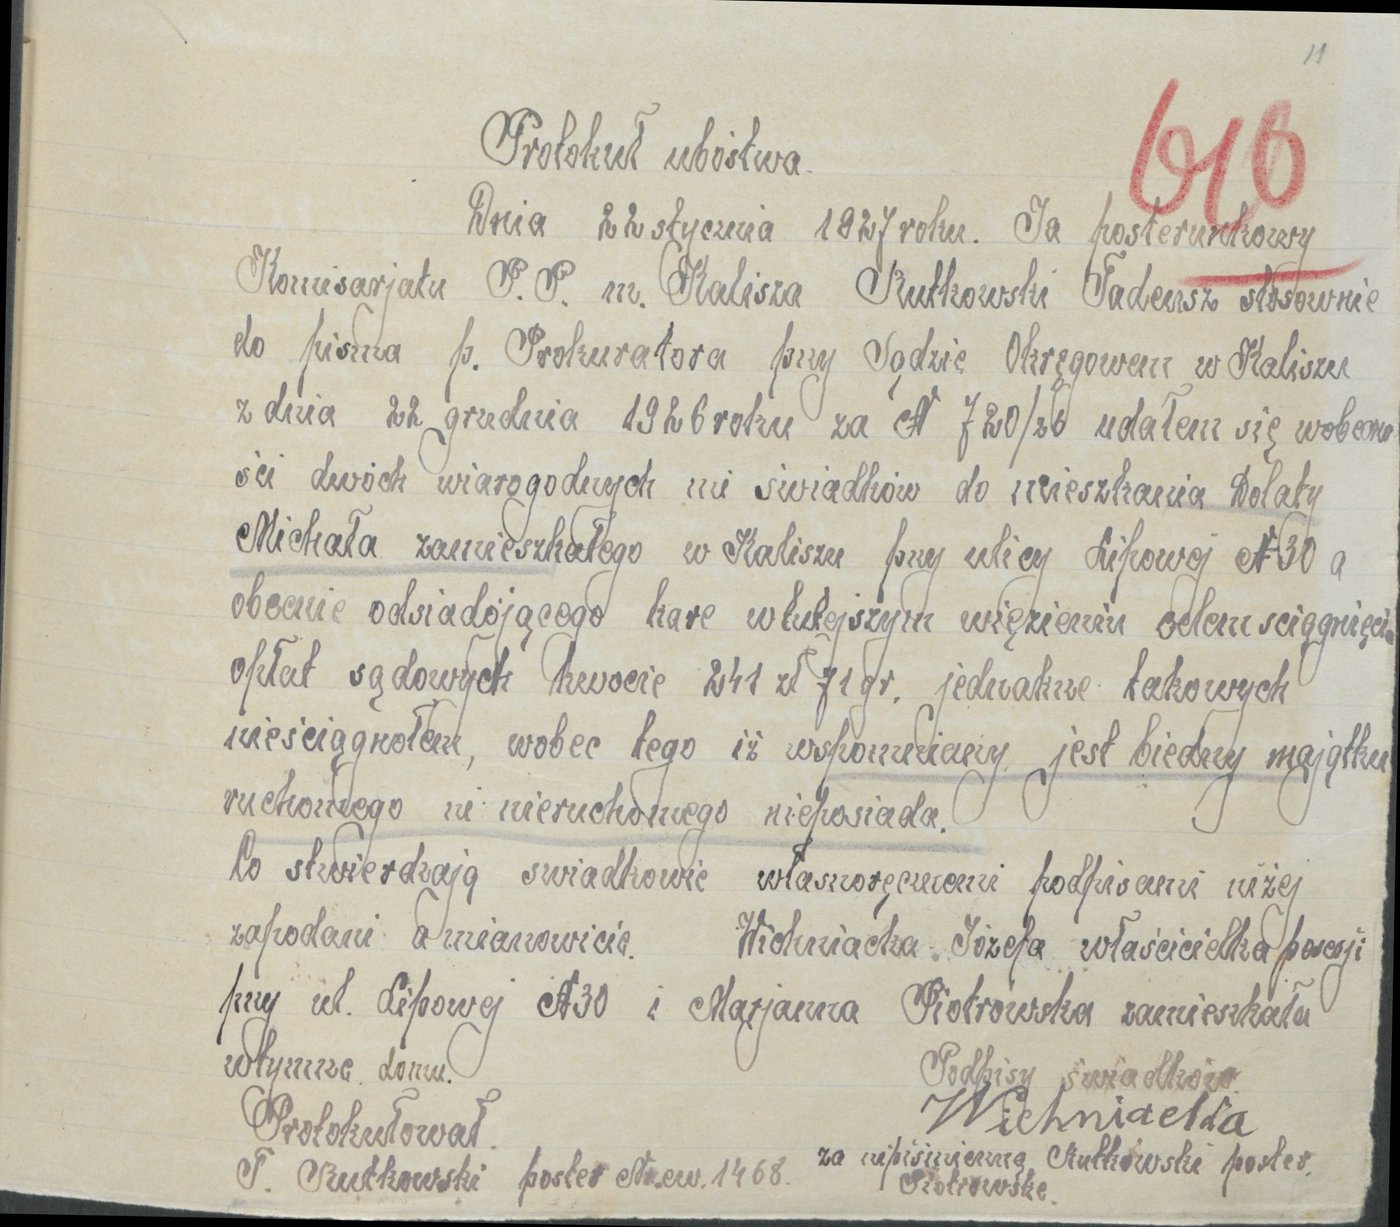 11
616
Protokuł ubóstwa.
Dnia 22 stycznia 1927 roku. Ja posterunkowy
Komisarjatu P.P. m. Kalisza Rutkowski Tadeusz stosownie
do pisma p. Prokuratora przy Sądzie Okręgowem w Kaliszu
z dnia 22 grudnia 1926 roku za № 720/26 udałem się wobecno-
ści dwóch wiarogodnych mi świadków do mieszkania Dolaty
Michała zamieszkałego w Kaliszu przy ulicy Lipowej № 30 a
obecnie odsiadójącego kare wtutejszym więzieniu celem sciągnięcia
opłat sądowych kwocie 241 zł 71 gr. jednakże takowych
nieściągnołem, wobec tego iż wspomniany jest biedny majątku
ruchomego ni nieruchomego nieposiada.
Co stwierdzają swiadkowie własnoręcznemi podpisami niżej
zapodani a mianowicie. Wichniacka Józefa właścicielka posesji
przy ul. Lipowej № 30 i Marjanna Piotrowska zamieszkała
wtymże domu.
Podpisy świadków.
Wichniacka
Protokułował.
za nipiśmienną Rutkowski poster.
Piotrowske.
T. Rutkowski poster № ew. 1468.